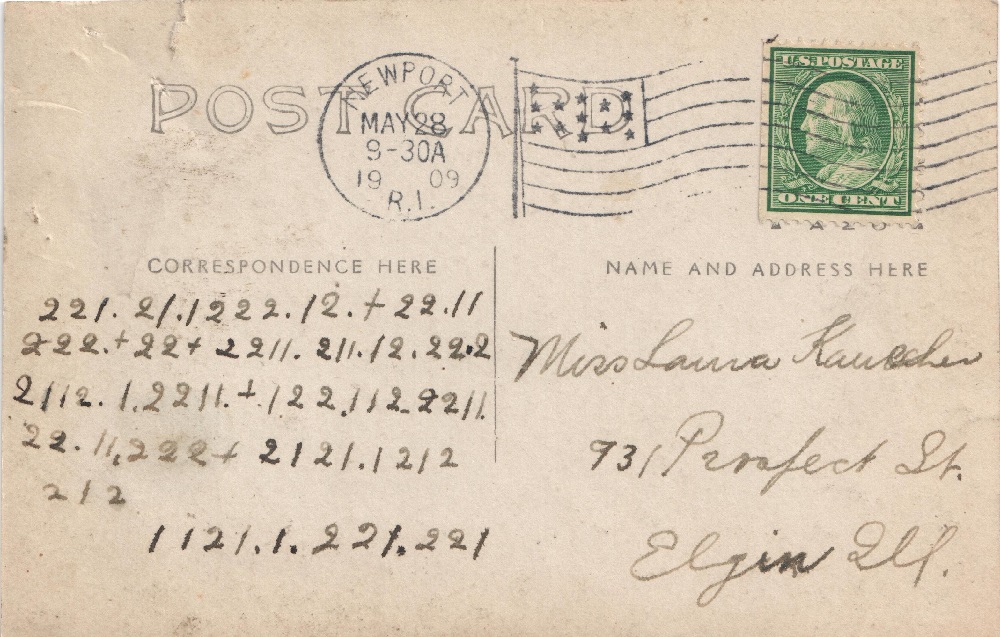 POST CARD
NEWPORT
MAY 28
9-30A
19 09
R.I.
U.S. POSTAGE
ONE CENT
CORRESPONDENCE HERE
NAME AND ADDRESS HERE
221. 21.1222.12.+ 22.11
222.+22+ 2211. 211.12.22.2
2112. 1.2211.+.122.112.2211.
22.11.222+ 2121.1212
212
1121.1.221.221
Miss Laura
931 Prospect St.
Elgin Ill.